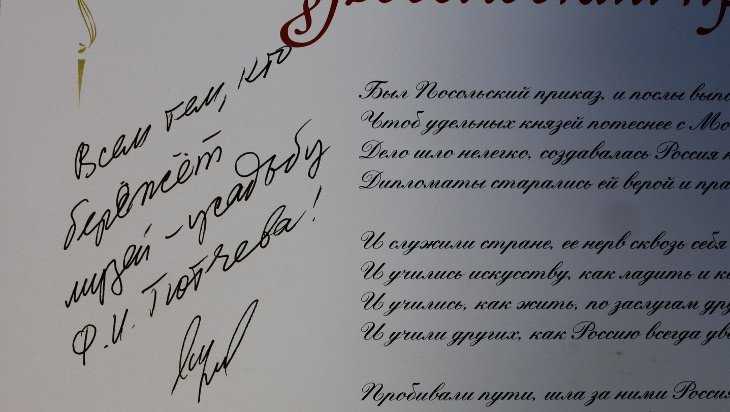 Всем тем, кто
бережёт
музей-усадьбу
Ф.И. Тютчева!
Был Посольский приказ, и послы
Чтоб удельных князей потеснее с
Дело шло нелегко, создавалась Россия
Дипломаты старались ей верой и
И служили стране, ее нерв сквозь себя
И учились искусству, как ладить и
И учились, как жить, по заслугам
И учили других, как Россию всегда
Пробивали пути, шла за ними Россия